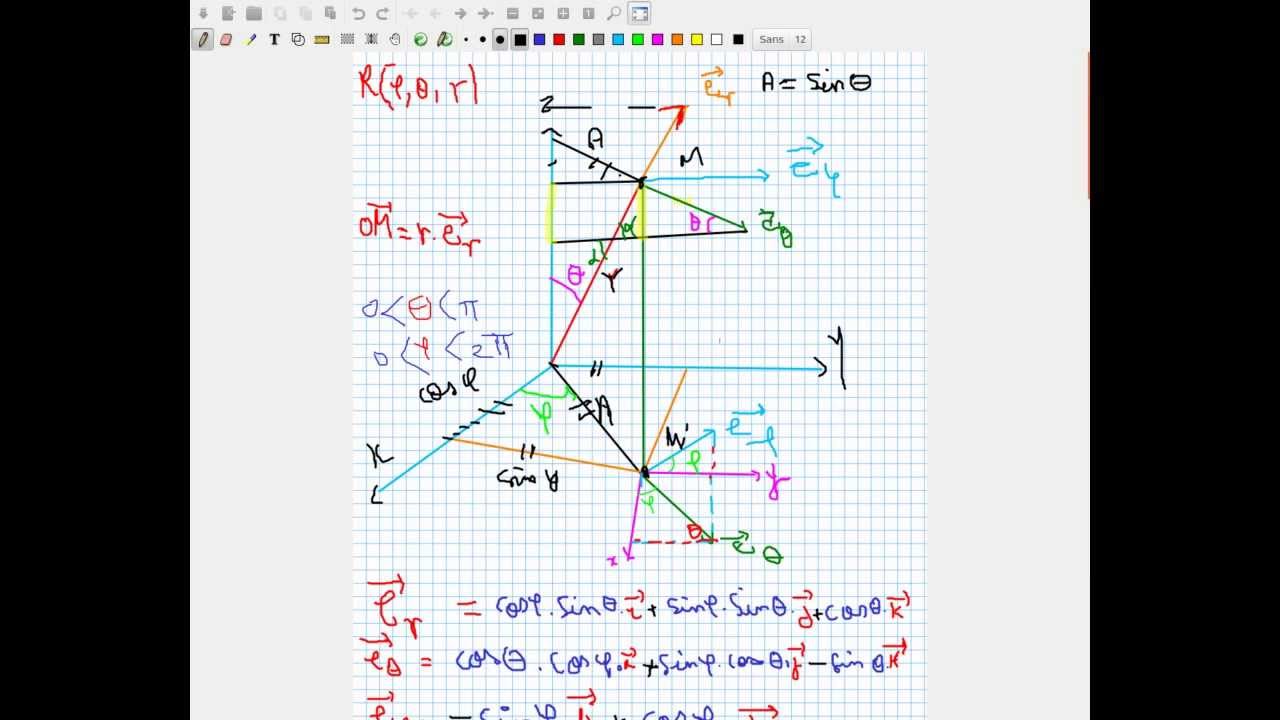 Sans 12
R(φ, θ, r)
Z
e⃗r
A = sin θ
A
M
e⃗φ
OM⃗ = r.e⃗r
α
θ
e⃗θ
α
θ
r
0 < θ < π
0 < φ < 2π
y
cos φ
φ
A
M'
e⃗φ
x
sin φ
φ
y
φ
θ
e⃗θ
x
e⃗r = cosφ.sinθ.i⃗ + sinφ.sinθ.j⃗ + cosθ.k⃗
e⃗θ = cosθ.cosφ.i⃗ + sinφ.cosθ.j⃗ - sinθ.k⃗